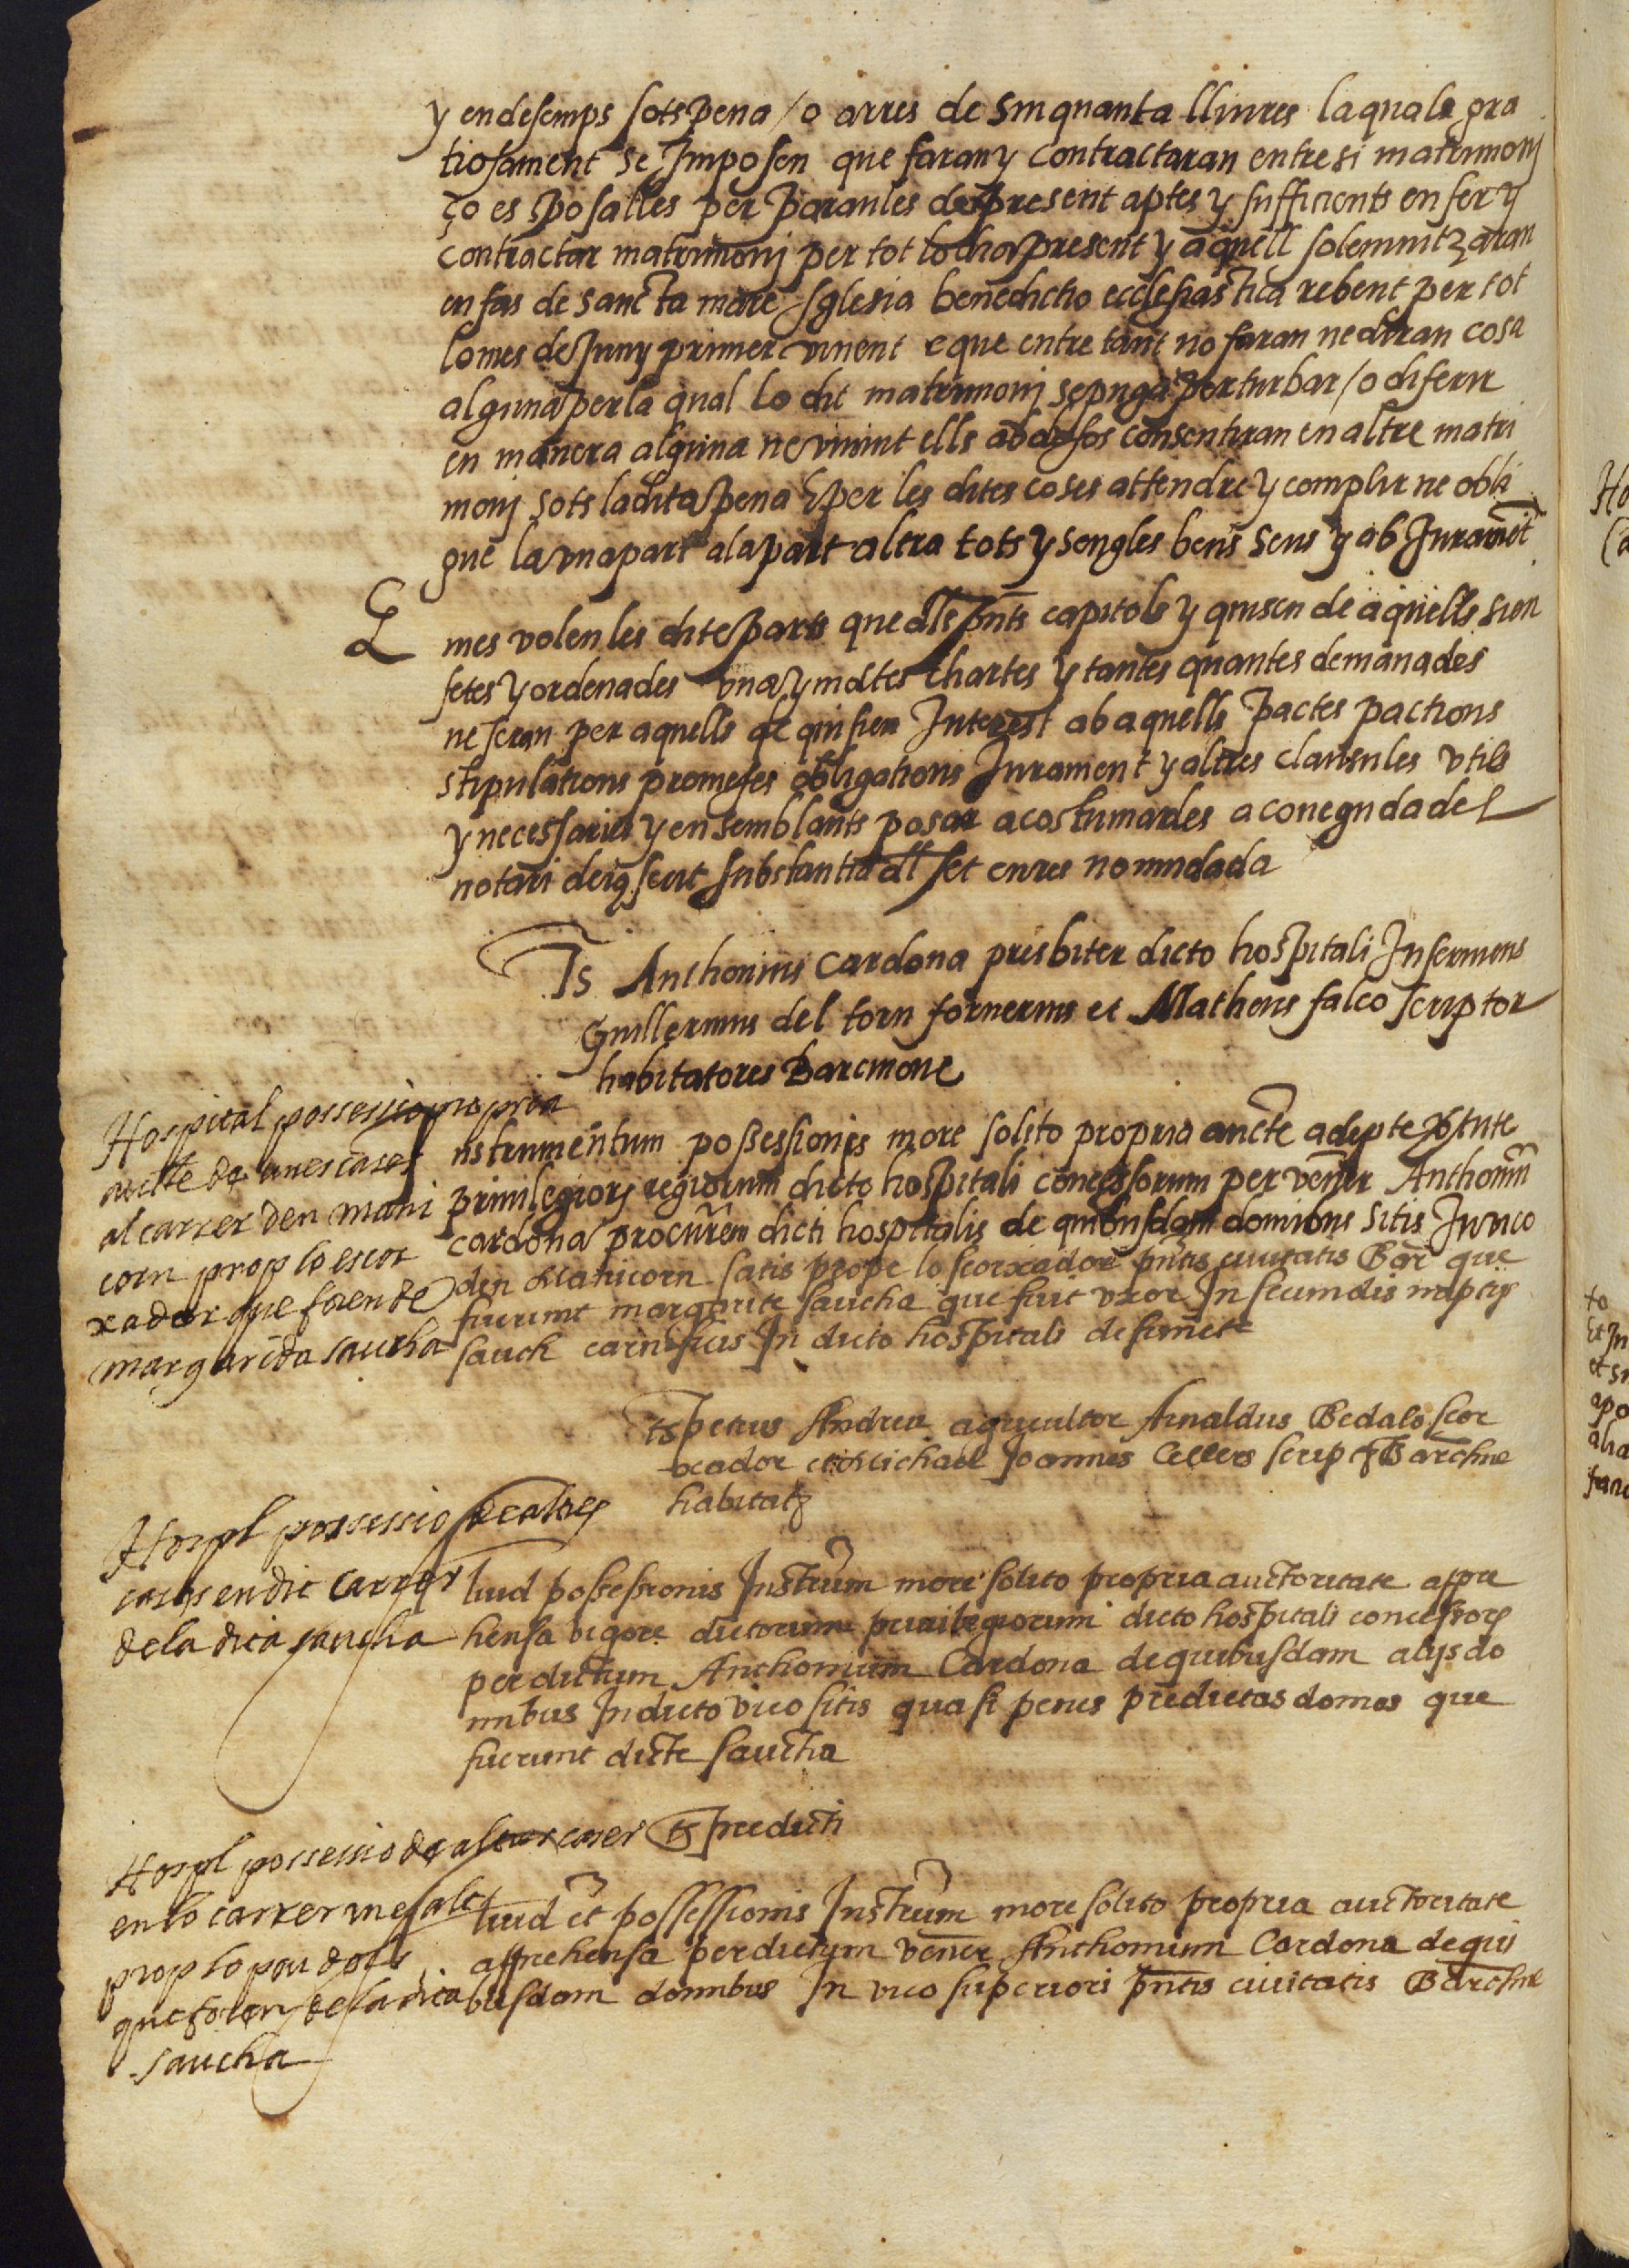 y endesemps sots pena / o arres de sinquanta lliures la qual gra
tiosament se Imposen que faran y contractaran entre si matrimonj
ço es sposalles per paraules de present aptes y sufficients en fer y
contractar matrimonj per tot lo dia present y aquell solemnitzaran
en fas de sancta mare sglesia benedictio ecclesiastica rebent per tot
lo mes de Juny primer vinent e que entretant no faran ne diran cosa
alguna per la qual lo dit matrimonj se puga perturbar / o diferir
en manera alguna ne vivint ells abdosos consentiran en altre matri
monj sots la dita pena E per les dites coses attendre y complir ne obli
gue la una part a la part altra tots y sengles bens seus y ab Jurament
E mes volen les dites parts que dls pnts capitols y quiscu de aquells sien
fetes y ordenades una y moltes chartes y tantes quantes demanades
ne seran per aquells de qui sien Interest ab aquells pactes pactions
stipulations promeses obligations Jurament y altres clausules utils
y necessaries y en semblants posar acostumades a coneguda del
notari deius scrit substantia dl fet en res no mudada
Ts Anthonius Cardona presbiter dicto hospitali Inserviens
Guillermus del torn fornerius et Matheus falco scriptor
habitatores Barcinone
Hospital possessio propria
aucte de unes cases
al carrer den mani
corn prop lo escor
xador que foren de
margarida saucha
nstrumentum possessionis more solito propria aucte adepte
privilegiorum regiorum dicto hospitali concessorum per vener Anthoniu
cardona procurem dicti hospitalis de quibusdam domibus sitis In vico
den Manicorn satis prope lo scorxador pntis civitatis Bar que
fuerunt margarite saucha que fuit uxor In secundis nuptijs
sauch carnificis In dicto hospitali defuncte
ts petrus Andreu agricultor Arnaldus Bedalo scor
xador et Michael Joannes Cellers scrip Barchne
habitat
Hospl possessio de altres
cases en dit carrer
de la dita saucha
liud possessionis Instrum more solito propria auctoritate appre
hensa vigore dictorum privilegiorum dicto hospitali concessor
per dictum Anthonium Cardona de quibusdam alijs do
mibus In dicto vico sitis quasi penes predictas domos que
fuerunt dicte Saucha
ts predicti
Hospl possessio de altres cases
en lo carrer mes alt
prop lo pou
que foren de la dita
saucha
liud et possessionis Instrum more solito propria auctoritate
apprehensa per dictum vener Anthonium Cardona de qui
busdam domibus In vico superiori pntis civitatis Barchne